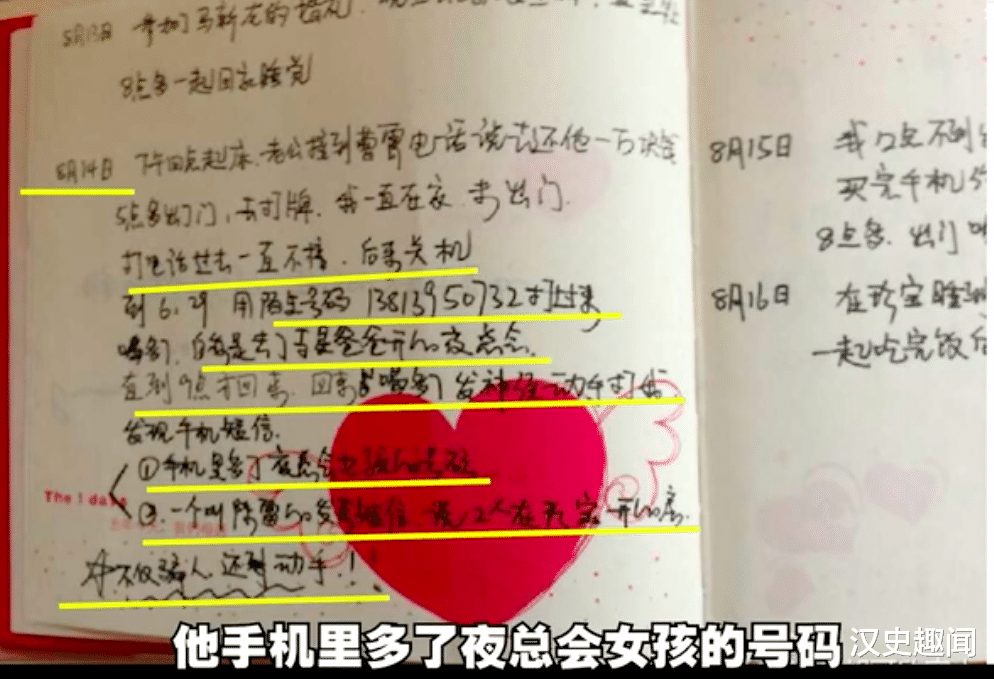 8月13日 参加了马新花的婚礼.
8点多一起回家睡觉
8月14日 下午四点起床.老公接到曹雷电话说请还他一万块钱
5点多出门,去打牌.我一直在家未出门.
打电话过去一直不接.后来关机
到6.29 用陌生号码13813950732打过来
喝多了,自称是去了 爸爸开的夜总会
直到9点才回来.回来 喝多了发神经动手打我
发现手机短信.
①手机里多了夜总会 的号码
② 一个叫陈雷的发其短信,说2人在 开的房.
不仅骗人还动手!!
The I days
8月15日 我
买完手机
8点多.出门
8月16日 在
一起吃完饭后
他手机里多了夜总会女孩的号码
汉史趣闻